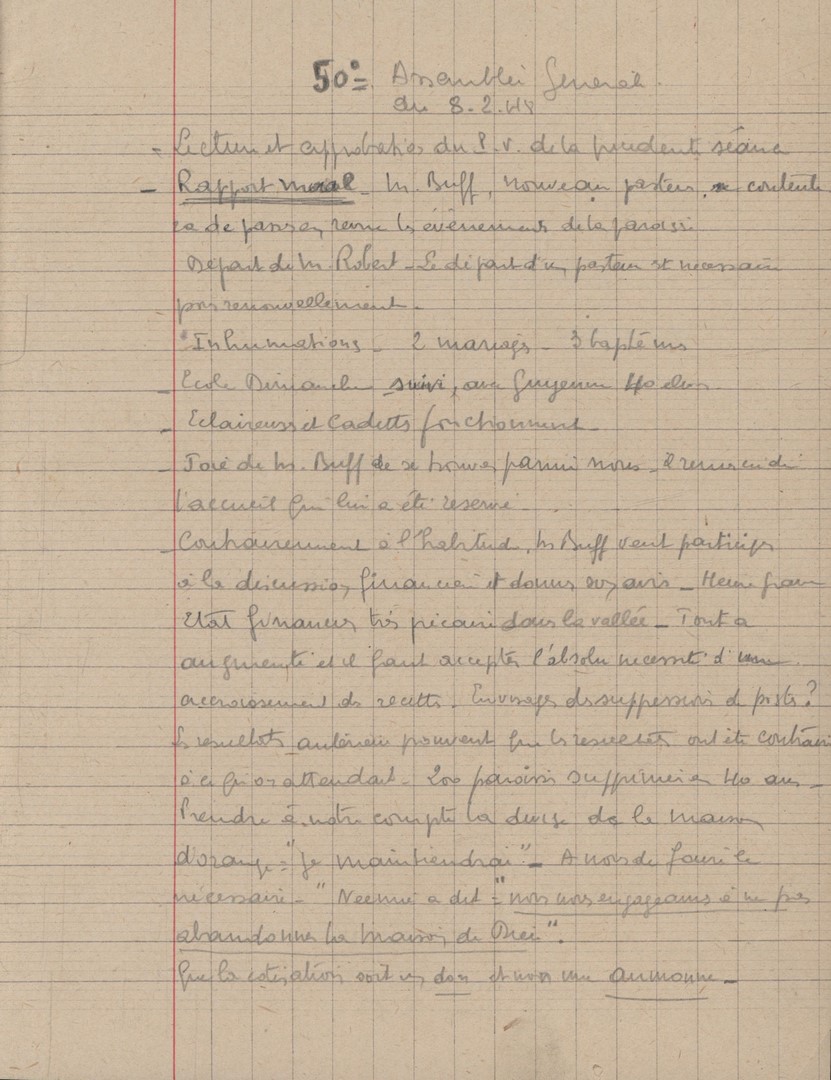 50e Assemblée Générale
du 8.2.48
- Lecture et approbation du P.V. de la précédente séance
- Rapport moral - M. Buff, nouveau pasteur, se contente
ra de passer en revue les évènements de la paroisse
Départ de M. Robert - Le départ d'un pasteur est nécessaire
pour renouvellement -
Inhumations - 2 mariages - 3 baptêmes
- Ecole Dimanche suivi, avec Guyenne 40
- Eclaireurs et Cadettes fonctionnent -
- Joie de M. Buff de se trouver parmi nous - il remercie de
l'accueil qui lui a été réservé -
- Contrairement à l'habitude, M Buff veut participer
à la discussion financière et donner son avis -
Etat finances très précaire dans la vallée - Tout a
augmenté et il faut accepter l'absolue nécessité d'un
accroissement des recettes. Envisager des suppressions de postes?
Les résultats antérieurs prouvent que les résultats ont été contraires
à ce qu'on attendait - 200 paroisses supprimées en 40 ans -
Prendre à notre compte la devise de la Maison
d'orange = "Je maintiendrai" - A nous de faire le
nécessaire - " Néemie a dit = "nous nous engageons à ne pas
abandonner la Maison de Dieu".
Que la cotisation soit un don et non une aumonne -